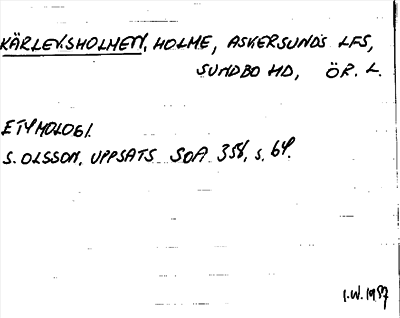 KÄRLEKSHOLMEN, HOLME, ASKERSUNDS LFS,
SUNDBO HD, ÖR. L.
ETYMOLOGI.
S. OLSSON, UPPSATS SOA 358, s. 64.
I.W. 1987